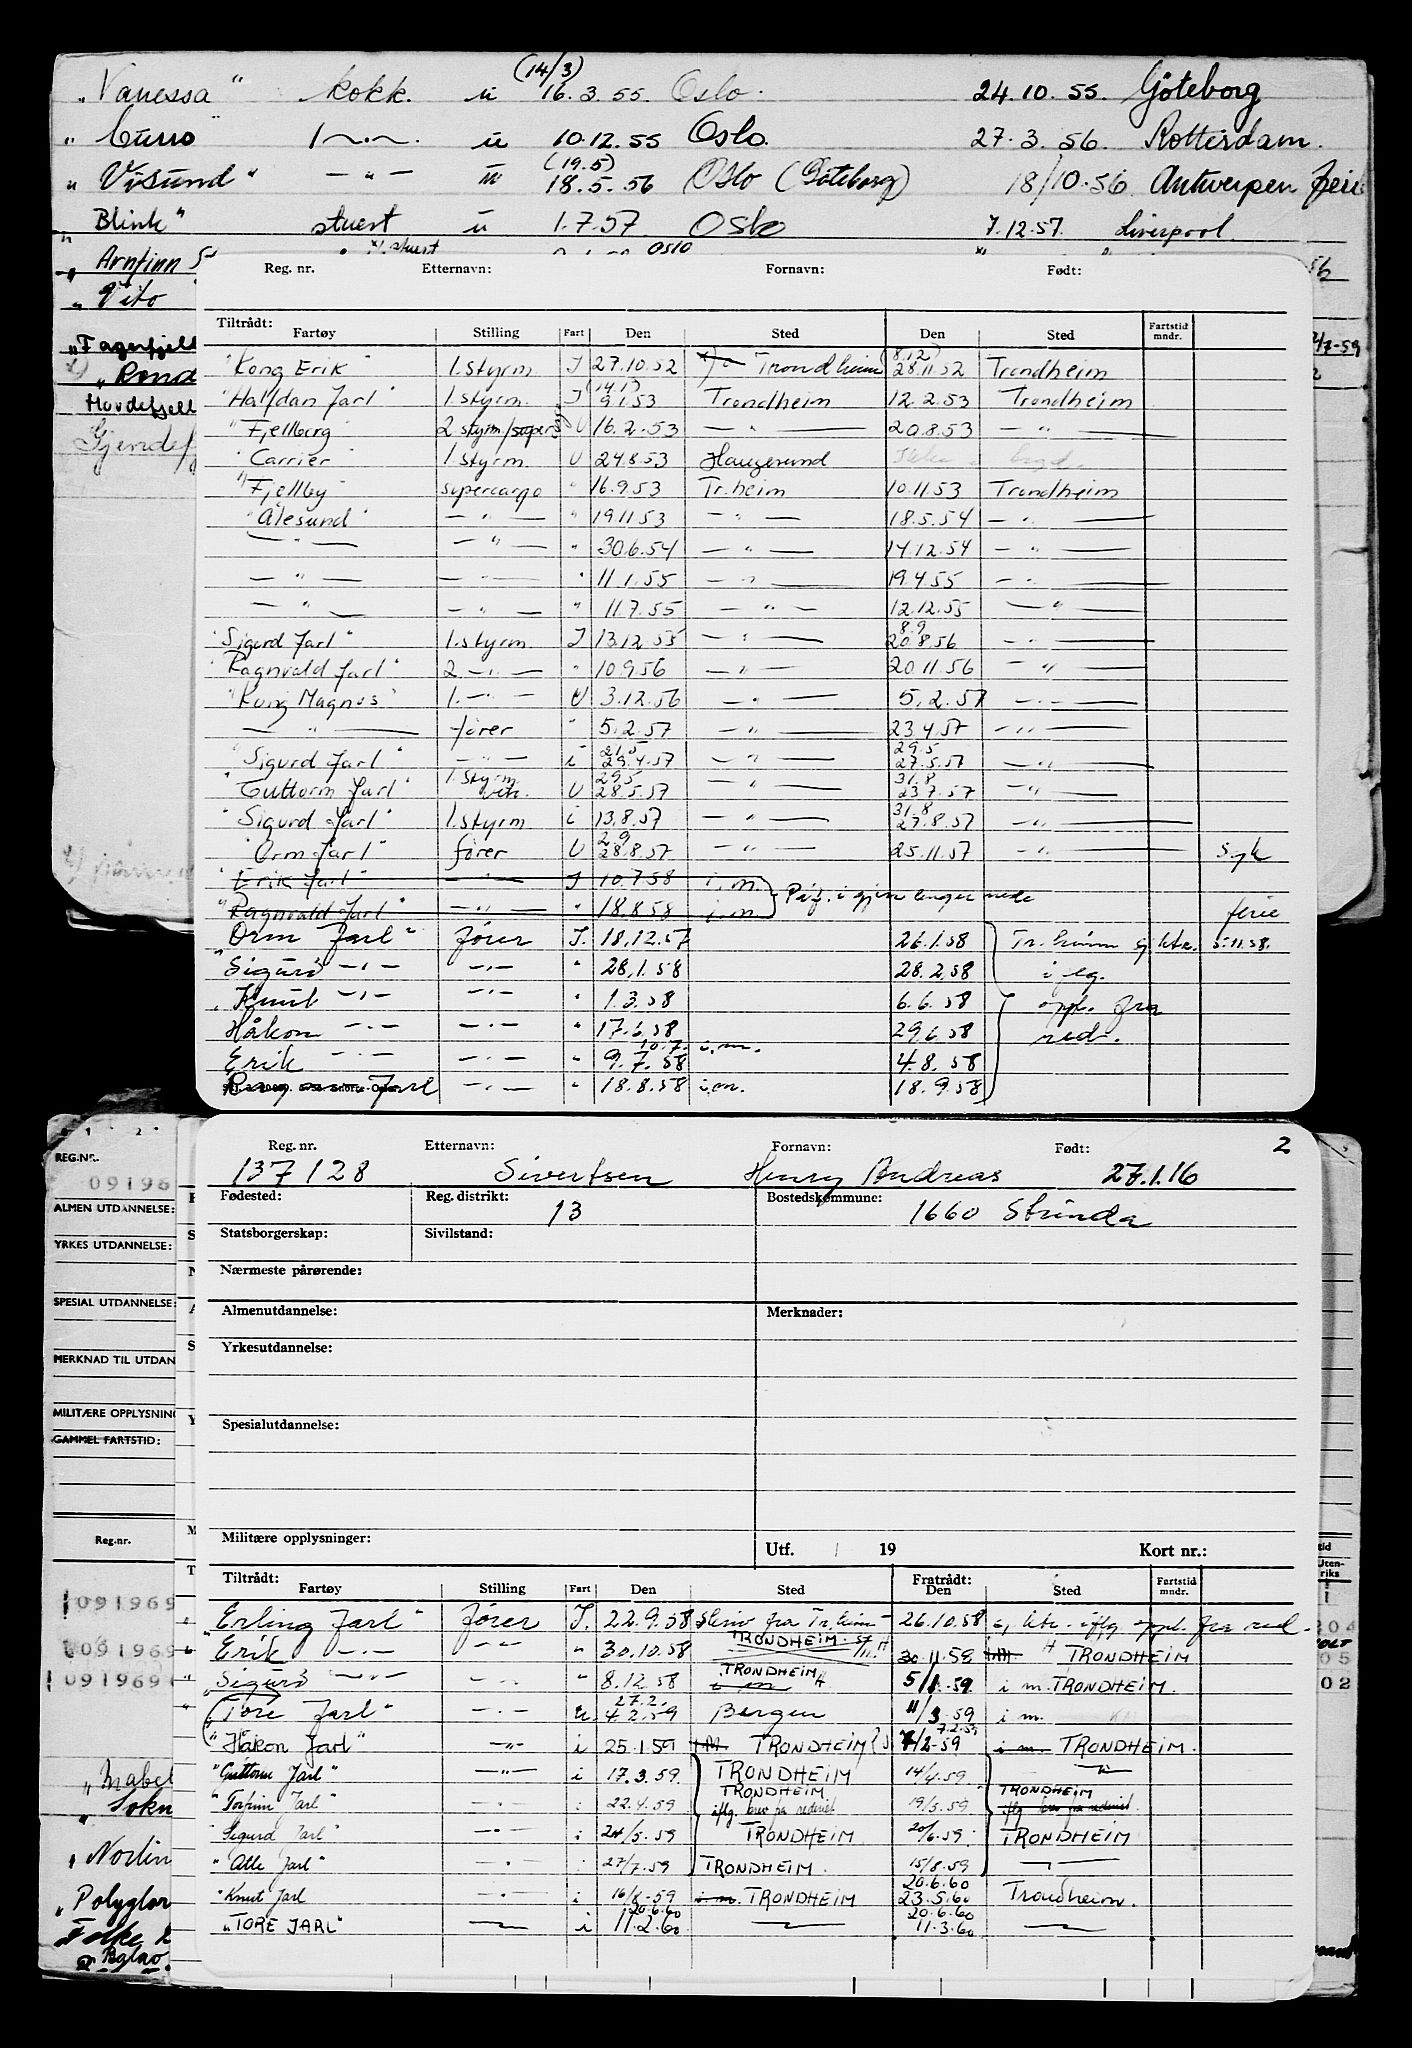 (14/3)
„Vanessa" kokk. u 16.3.55. Oslo. 24.10.55. Göteborg
" 10.12.55 Oslo. 27.3.56. Rotterdam.
(19.5)
" Visund" — " — u 18.5.56 Oslo (Göteborg) 18/10-56 Antwerpen ferie
" Blink" stuert u 1.7.57. Oslo 7.12.57. Liverpool.
" Arnfinn S x/ stuert Oslo
" Vito
"Fagerfjell /7-59
"Rond
Hovdefjell
Gjendef
Reg. nr. Etternavn: Fornavn: Født:
Tiltrådt:
Fartøy Stilling Fart Den Sted Den Sted Fartstid mndr.
"Kong Erik" 1.styrm I 27.10.52 Trondheim (8.12) 28.11.52 Trondheim
"Halfdan Jarl" 1.styrm. I (14.1) 9.1.53 Trondheim 12.2.53 Trondheim
"Fjellberg" 2 styrm/super U 16.2.53 — " — 20.8.53 — " —
"Carrier" 1.styrm. U 24.8.53 Haugesund
"Fjellby" supercargo " 16.9.53 Tr.heim 10.11.53 Trondheim
"Ålesund" — " — " 19.11.53 — " — 18.5.54 — " —
— " — — " — " 30.6.54 — " — 14.12.54 — " —
— " — — " — " 11.1.55 — " — 19.4.55 — " —
— " — — " — " 11.7.55 — " — 12.12.55 — " —
"Sigurd Jarl" 1.styrm. I 13.12.55 — " — 8.9 20.8.56 — " —
"Ragnvald Jarl" 2. — " — " 10.9.56 — " — 20.11.56 — " —
"Kong Magnus" 1. — " — U 3.12.56 — " — 5.2.57 — " —
— " — fører " 5.2.57 — " — 23.4.57 — " —
"Sigurd Jarl" — " — i 21.5 29.4.57 — " — 29.5 27.5.57 — " —
"Guttorm Jarl" 1.styrm vik. U 29.5 28.5.57 — " — 31.8 23.7.57 — " —
"Sigurd Jarl" 1.styrm i 13.8.57 — " — 31.8 27.8.57 — " —
"Orm Jarl" fører U 2.9 28.8.57 — " — 25.11.57 — " — syk
"Erik Jarl" — " — I 10.7.58 i.m.
"Ragnvald Jarl" — " — " 18.8.58 i.m. Påf. i gjen lenger nede ferie
"Orm Jarl" fører I. 18.12.57 26.1.58 Tr.heim 5.11.58.
"Sigurd — " — — " — " 28.1.58 28.2.58 i flg.
"Knut — " — — " — " 1.3.58 6.6.58 oppl. fra
Håkon — " — — " — " 17.6.58 29.6.58 red.
Erik — " — — " — " 10.7. 9.7.58 i.m. 4.8.58
Jarl — " — " 18.8.58 i.m. 18.9.58
2
Reg. nr. Etternavn: Fornavn: Født:
137128 Sivertsen Henry Andreas 27.1.16
Fødested: Reg. distrikt: Bostedskommune:
13 1660 Strinda
Statsborgerskap: Sivilstand:
Nærmeste pårørende:
Almenutdannelse: Merknader:
Yrkesutdannelse:
Spesialutdannelse:
Militære opplysninger:
Utf. 19 Kort nr.:
Tiltrådt: Fratrådt:
Fartøy Stilling Fart Den Sted Den Sted Fartstid mndr.
"Erling Jarl" fører I. 22.9.58 Skriv fra Tr.heim 26.10.58 oppl. fra red.
"Erik — " — — " — " 30.10.58 TRONDHEIM 30.11.58 TRONDHEIM
"Sigurd — " — — " — " 8.12.58 TRONDHEIM i m 5/1.59. i m. TRONDHEIM.
"Tore Jarl" — " — u 27.2. 4.2.59 Bergen 11/3.59 i m.
"Håkon Jarl" — " — i 25.1.59 TRONDHEIM 7.2.59 7/2-59 i m TRONDHEIM.
"Guttorm Jarl" — " — i 17.3.59. TRONDHEIM 14/4.59. — " —
"Torfinn Jarl" — " — i 22.4.59 TRONDHEIM iflg. brev fra rederiet 19/5.59 TRONDHEIM iflg brev fra rederiet.
"Sigurd Jarl" — " — i 24/5.59 TRONDHEIM 20/6.59. TRONDHEIM
"Atle Jarl" — " — i 27/7.59 TRONDHEIM. 15/8.59 — " —
"Knut Jarl — " — i 16/8-59 i m. TRONDHEIM 20.6.60 23.5.60 Trondheim.
"TORE JARL" — " — i 20.6.60 11.2.60 — " — 20.6.60 11.3.60 — " —
REG.NR.
09196
ALMEN UTDANNELSE:
YRKES UTDANNELSE:
SPESIAL UTDANNELSE:
MERKNAD TIL UTDAN
MILITÆRE OPPLYSNIN
GAMMEL FARTSTID:
Reg.nr.
091969
091969
091969
"Mabel
"Sokn
"Norlin
"Polyglor